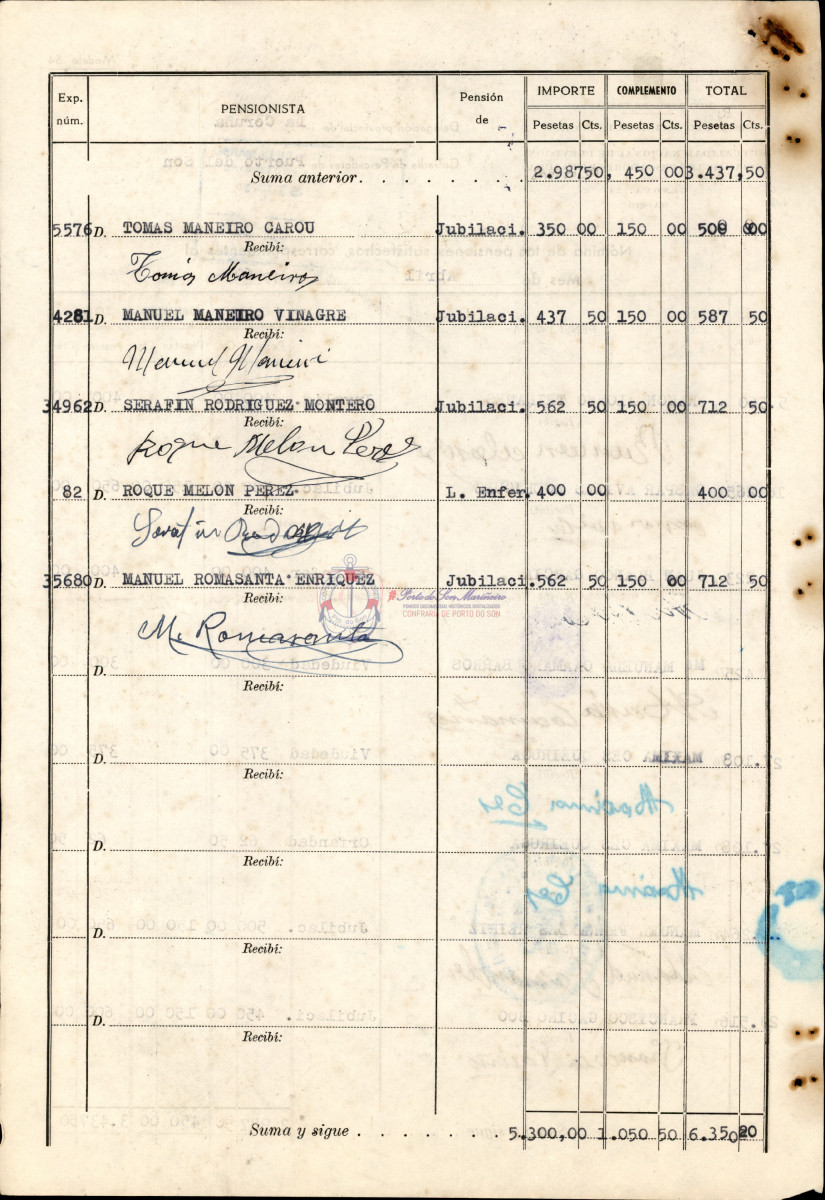 Exp. núm. PENSIONISTA Pensión de IMPORTE COMPLEMENTO TOTAL
Pesetas Cts. Pesetas Cts. Pesetas Cts.
Suma anterior. . . . . . . . 2.98750, 450 003.437,50
5576 D. TOMAS MANEIRO CAROU Jubilaci. 350 00 150 00 500 00
Recibí:
Tomás Maneiros
4281 D. MANUEL MANEIRO VINAGRE Jubilaci. 437 50 150 00 587 50
Recibí:
Manuel Maneiro
34962 D. SERAFIN RODRIGUEZ MONTERO Jubilaci. 562 50 150 00 712 50
Recibí:
Roque Melon Perez
82 D. ROQUE MELON PEREZ L. Enfer. 400 00 400 00
Recibí:
Serafin
35680 D. MANUEL ROMASANTA ENRIQUEZ Jubilaci. 562 50 150 00 712 50
Recibí:
Porto do Son Mariñeiro
CONFRARIA DE PORTO DO SON
M. Romasanta
D.
Recibí:
D.
Recibí:
D.
Recibí:
D.
Recibí:
D.
Recibí:
Suma y sigue . . . . . . . 5.300,00 1.050 50 6.350